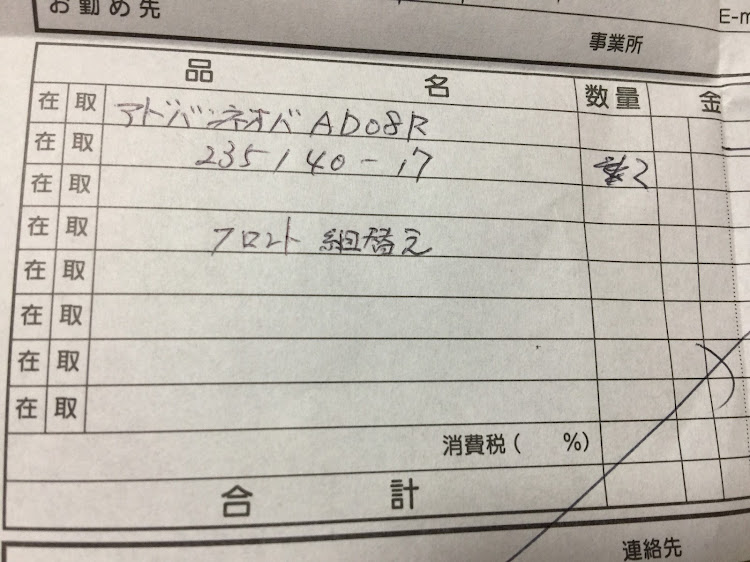 お勤め先
E-m
事業所
品 名 数量 金
在 取 アドバンネオバ AD08R
在 取 235/40-17 2
在 取
在 取 フロント 組替え
在 取
在 取
在 取
在 取
消費税( %)
合 計
連絡先